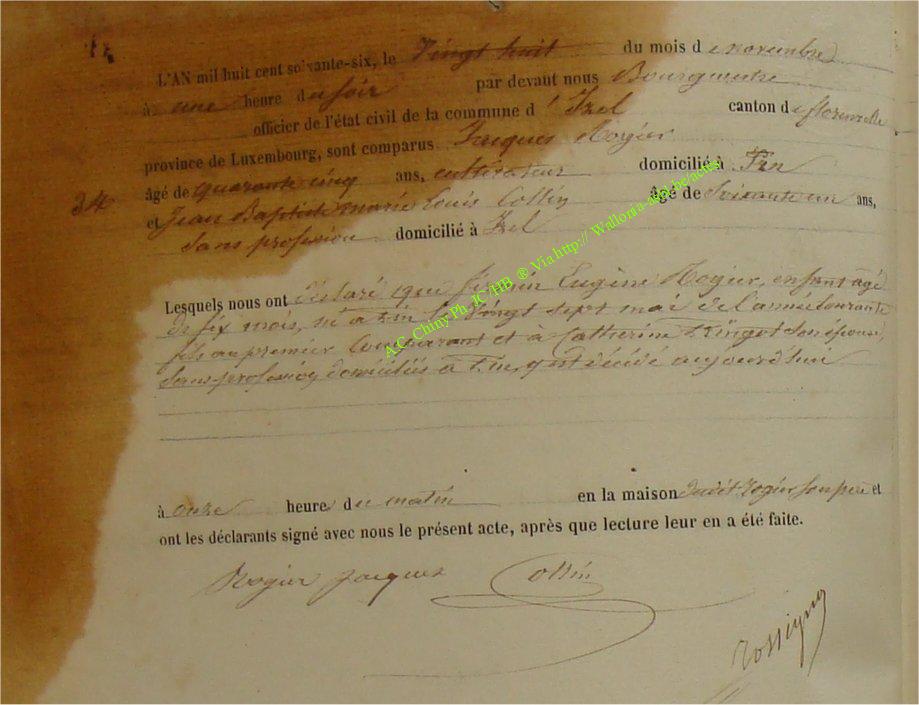 L'AN mil huit cent soixante-six, le Vingt huit du mois de novembre
à une heure du soir par devant nous Bourgmestre
officier de l'état civil de la commune d'Izel canton de florenville
province de Luxembourg, sont comparus Jacques Rogier
34 âgé de quarante cinq ans, cultivateur domicilié à
et Jean Baptiste marie Louis Collin âgé de Soixante un ans,
Sans profession domicilié à Izel
Lesquels nous ont déclaré que firmin Eugène Rogier, enfant agé
de six mois, né à le Vingt sept mai de l'année Courante
fils au premier Comparant et à Catherine son épouse,
Sans profession, domiciliés à y est décédé aujourd'hui
à onze heure du matin en la maison dudit Rogier son père et
ont les déclarants signé avec nous le présent acte, après que lecture leur en a été faite.
Rogier Jacques Collin
Rossign
A.C. Chiny Ph. JC HB ® Via http:// Wallonia-asbl.be/actes